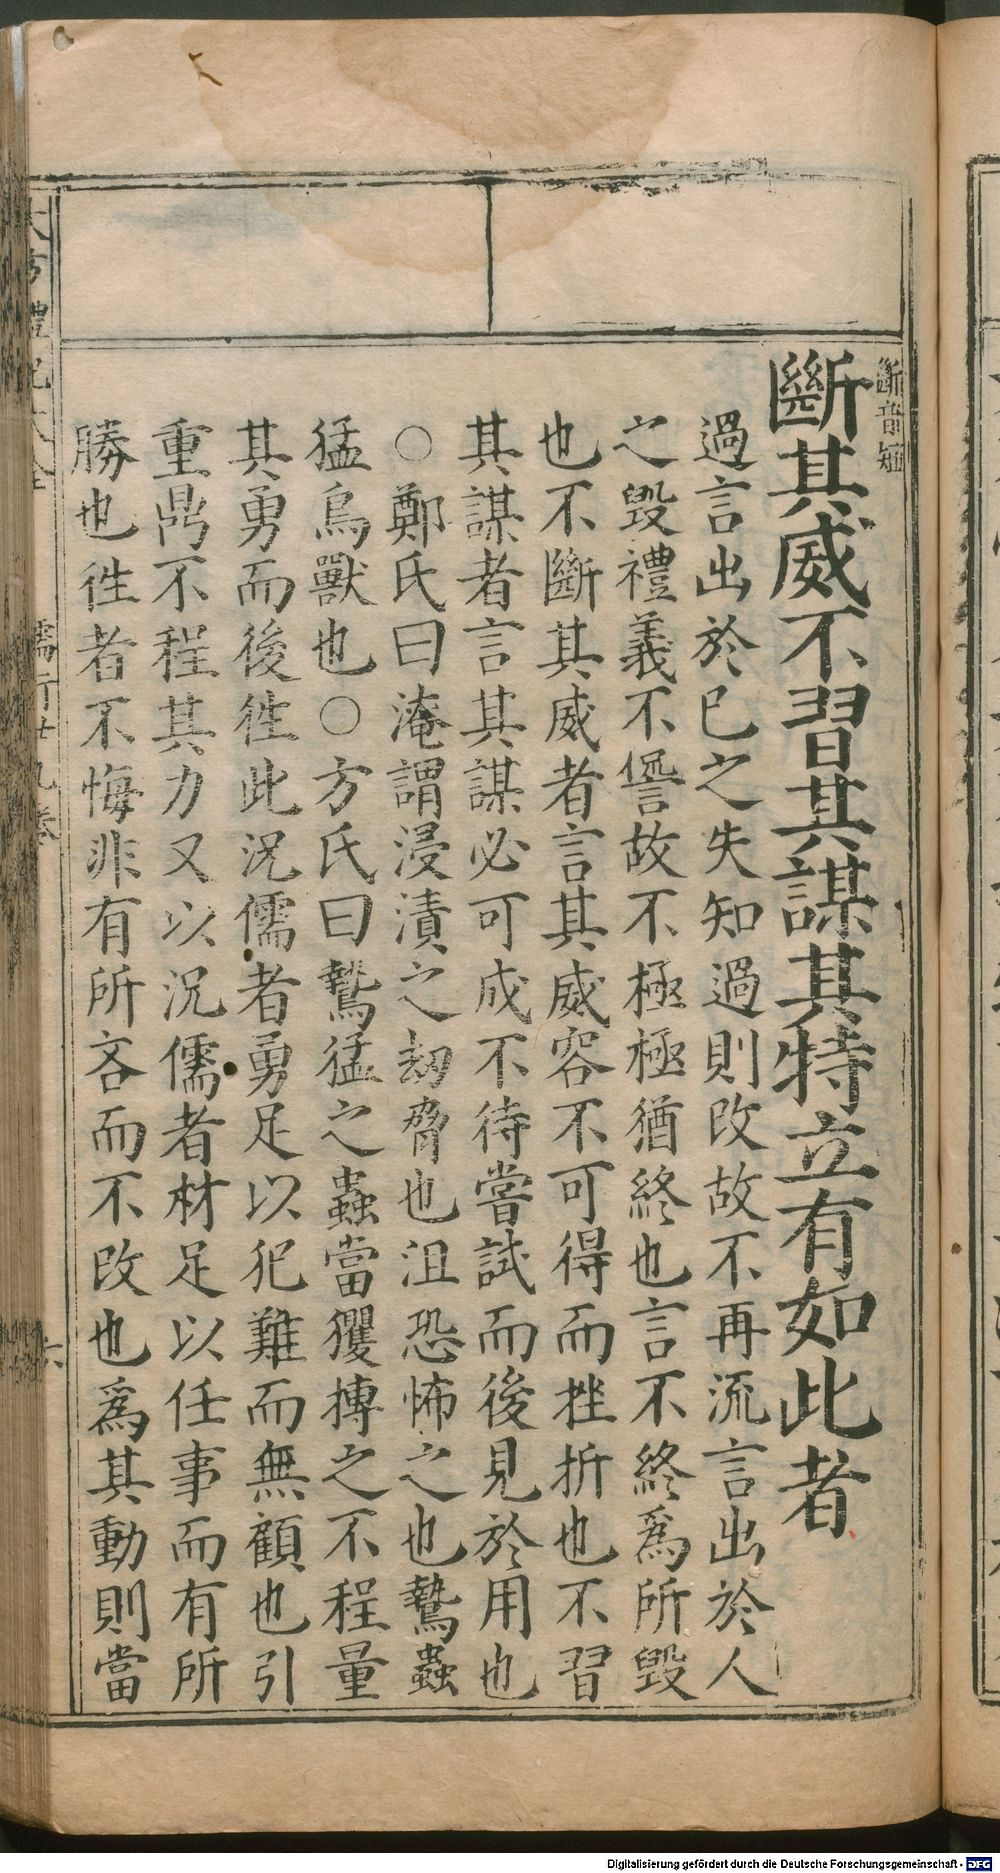 斷音短
斷其威不習其謀其特立有如此者
過言出於已之失知過則改故不再流言出於人
之毀禮義不諐故不極極猶終也言不終爲所毀
也不斷其威者言其威容不可得而挫折也不習
其謀者言其謀必可成不待嘗試而後見於用也
○鄭氏曰淹謂浸漬之刼脅也沮恐怖之也鷙蟲
猛鳥獸也○方氏曰鷙猛之蟲當攫搏之不程量
其勇而後徃此況儒者勇足以犯難而無顧也引
重鼎不程其力又以況儒者材足以任事而有所
勝也徃者不悔非有所吝而不改也爲其動則當
禮記大全
儒行廿九卷
六
Digitalisierung gefördert durch die Deutsche Forschungsgemeinschaft - DFG